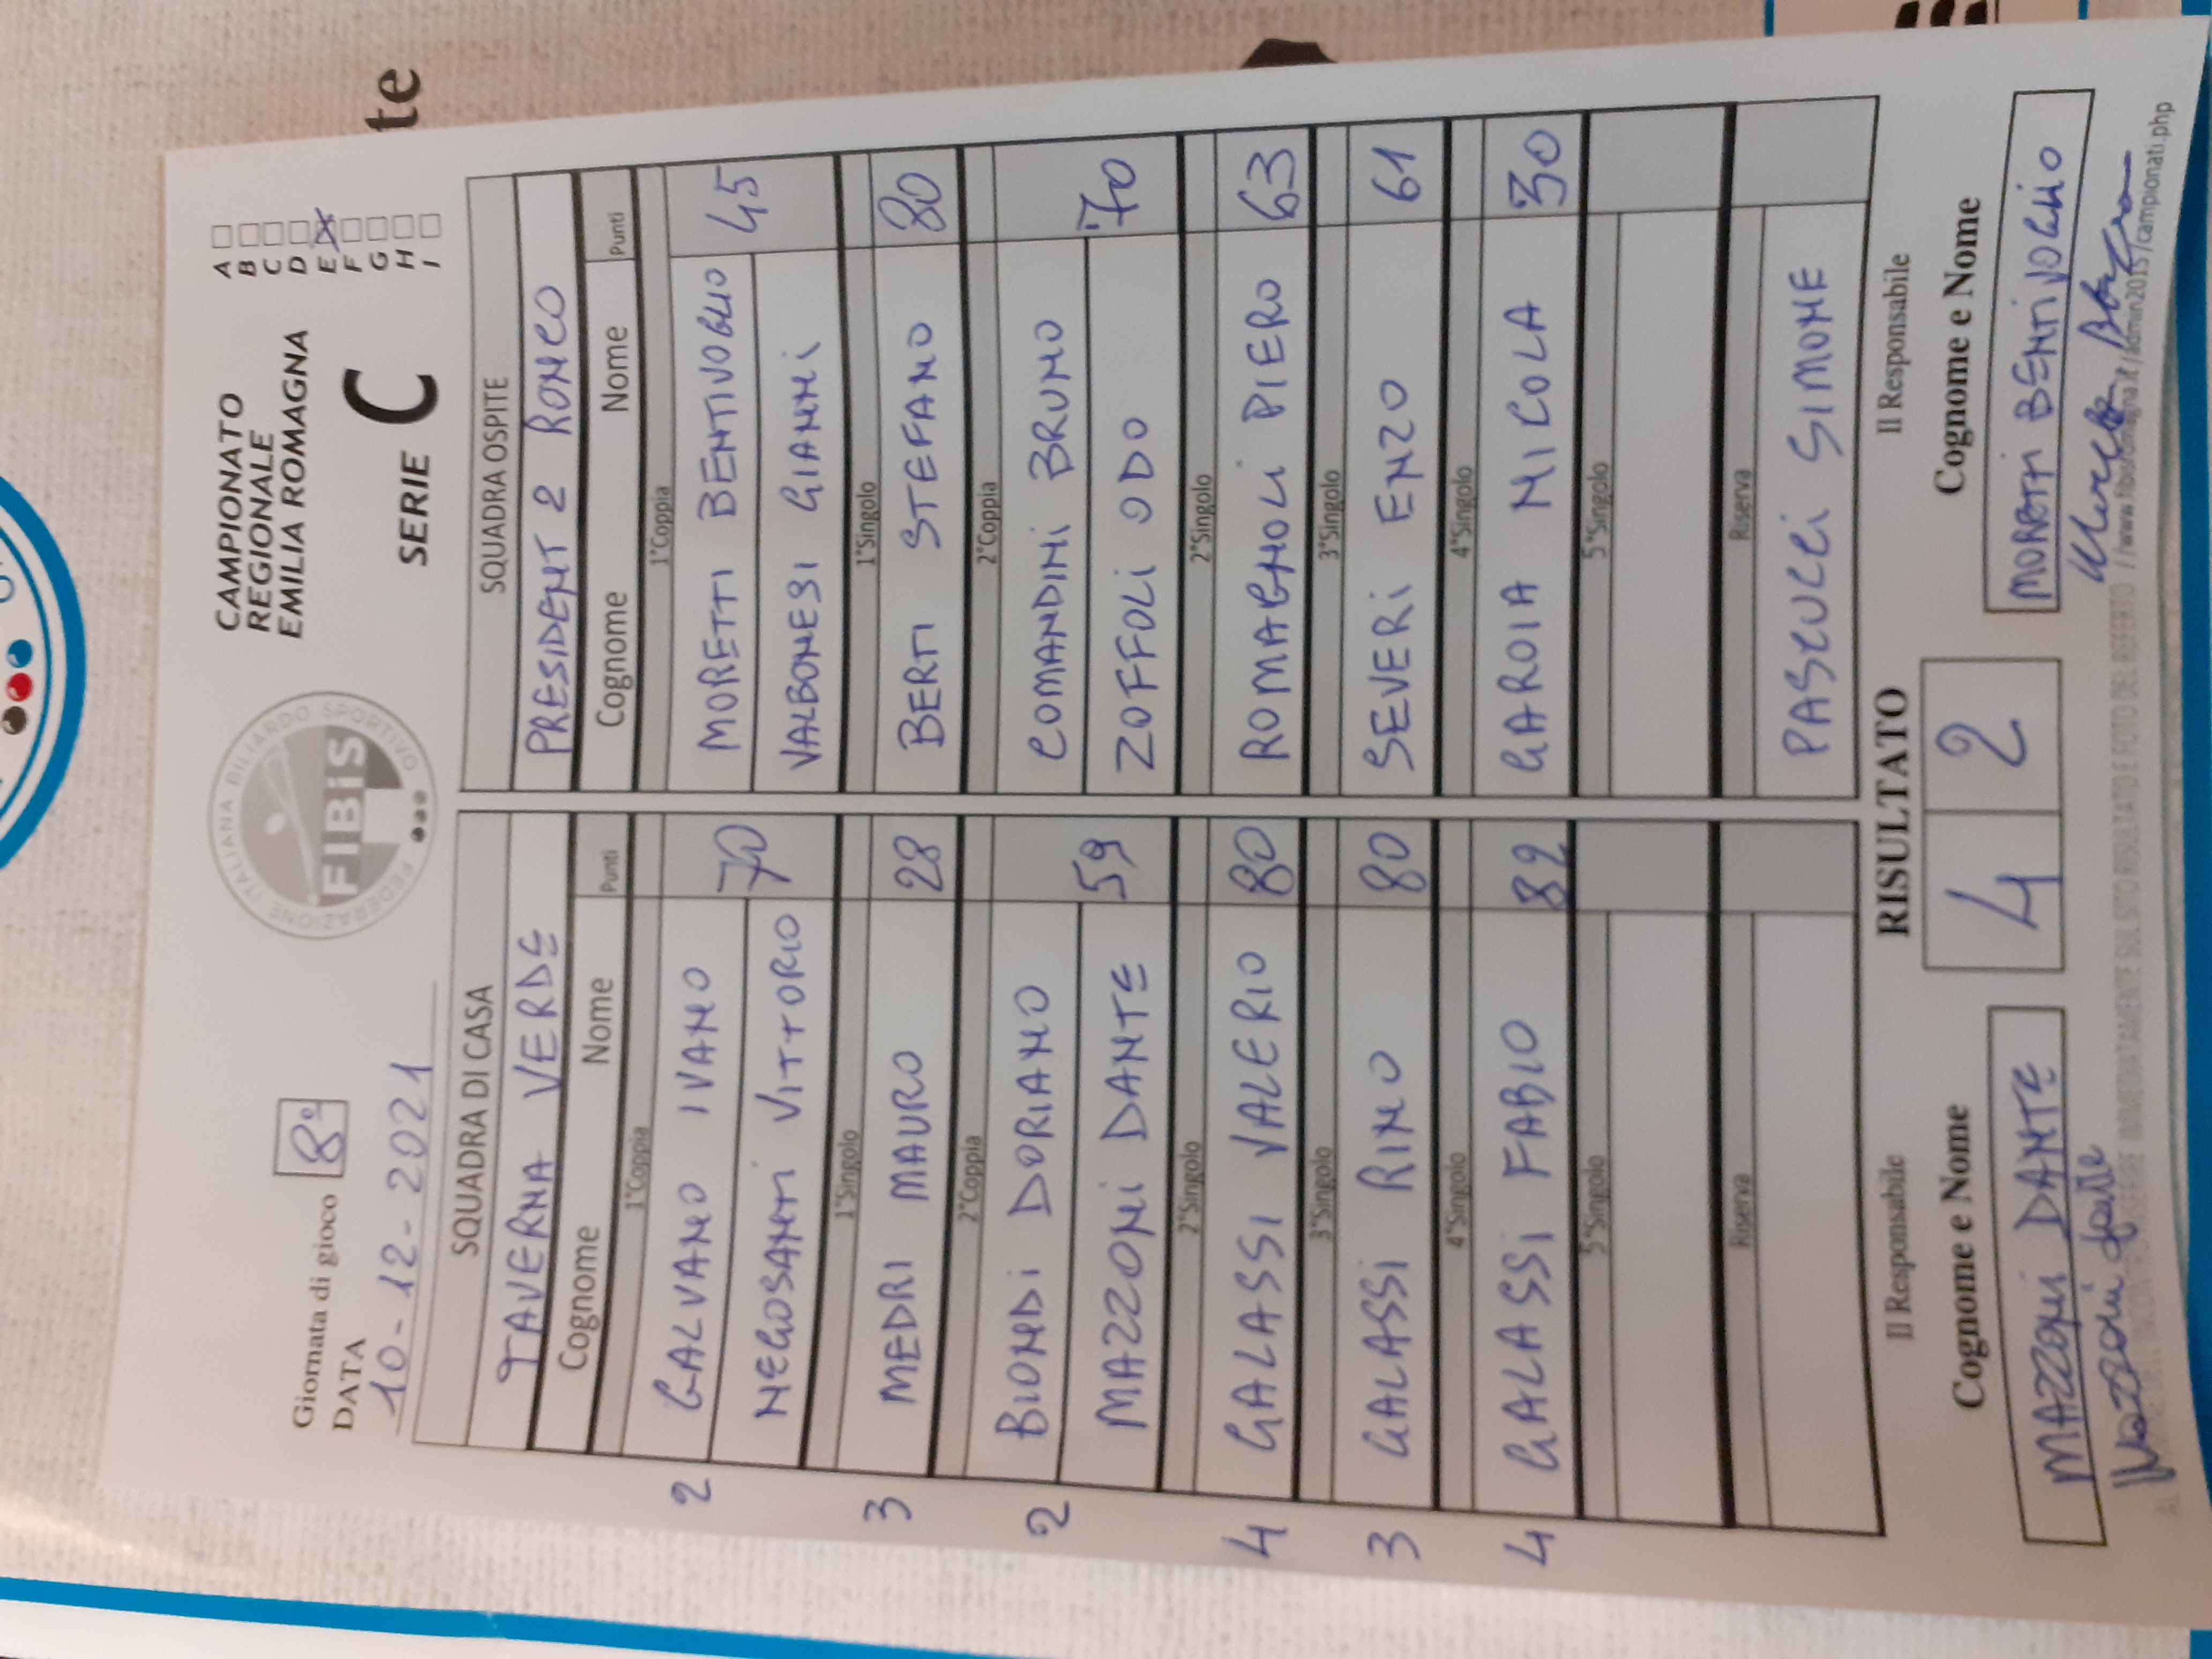 te
Giornata di gioco 8°
DATA
10-12-2021
FEDERAZIONE ITALIANA BILIARDO SPORTIVO
FIBiS
CAMPIONATO
REGIONALE
EMILIA ROMAGNA
SERIE C
A
B
C
D
E X
F
G
H
I
SQUADRA DI CASA SQUADRA OSPITE
TAVERNA VERDE PRESIDENT 2 RONCO
Cognome Nome Punti Cognome Nome Punti
1°Coppia 1°Coppia
2 GALVANO IVANO 70 MORETTI BENTIVOGLIO 45
NEGOSANTI VITTORIO VALBONESI GIANNI
1°Singolo 1°Singolo
3 MEDRI MAURO 28 BERTI STEFANO 80
2°Coppia 2°Coppia
2 BIONDI DORIANO COMANDINI BRUNO
MAZZONI DANTE 59 ZOFFOLI ODO 70
2°Singolo 2°Singolo
4 GALASSI VALERIO 80 ROMAGNOLI PIERO 63
3°Singolo 3°Singolo
3 GALASSI RINO 80 SEVERI ENZO 61
4°Singolo 4°Singolo
4 GALASSI FABIO 82 GAROIA NICOLA 30
5°Singolo 5°Singolo
Riserva Riserva
PASCUCCI SIMONE
Il Responsabile RISULTATO Il Responsabile
Cognome e Nome 4 2 Cognome e Nome
MAZZONI DANTE MORETTI BENTIVOGLIO
Mazzoni Dante
IMMEDIATAMENTE SUL SITO RISULTATO E FOTO DEL REFERTO //www.fibisromagna.it/admin2015/campionati.php